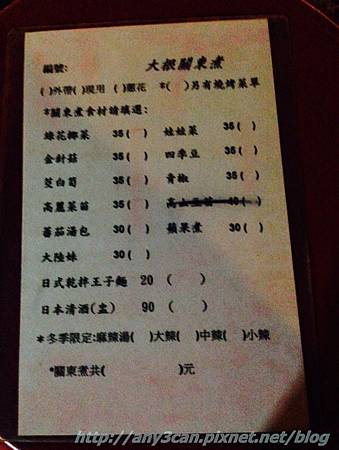 編號: 大根關東煮
( )外帶( )現用 ( )蔥花 *( )另有燒烤菜單
*關東煮食材請填選:
綠花椰菜 35( ) 娃娃菜 35( )
金針菇 35( ) 四季豆 35( )
茭白筍 35( ) 青椒 35( )
高麗菜苗 35( ) 高山 40( )
蕃茄湯包 30( ) 蘋果煮 30( )
大陸妹 30( )
日式乾拌王子麵 20 ( )
日本清酒(盅) 90 ( )
*冬季限定:麻辣湯( )大辣( )中辣( )小辣
*關東煮共( )元
http://any3can.pixnet.net/blog